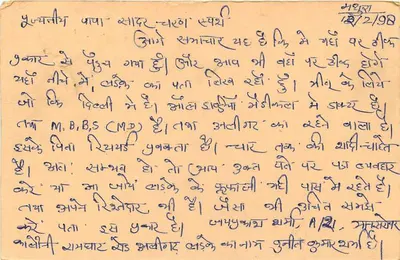 मथुरा
12/2/98
पूज्यनीय पापा सादर-चरण स्पर्श
आगे समाचार यह है कि मै यहाँ पर ठीक
प्रकार से पहुँच गया हूँ। और आप भी वहाँ पर ठीक होंगे
यहाँ नीचे में, लड़के का पता लिख रहा हूँ। के लिये
जो कि दिल्ली में है। ऑल इण्डिया मैडीकल में डाक्टर है।
तथा M.B.B.S (M.D) है। तथा अलीगढ का रहने वाला है।
इसके पिता रिटायर्ड प्रवक्ता है। चार तक की शादी चाहते
है। अतः सम्भव हो तो आप उक्त पते पर पत्र व्यवहार
करे या आ जायें लड़के के फूफाजी यही पास में रहते है।
तथा अपने रिश्तेदार भी है। जैसा भी उचित समझे
करे पता इस प्रकार है। जयप्रकाश शर्मा, A/2, मानसरोवर
कालौनी रामघाट रोड अलीगढ लड़के का नाम पुनीत कुमार शर्मा है।